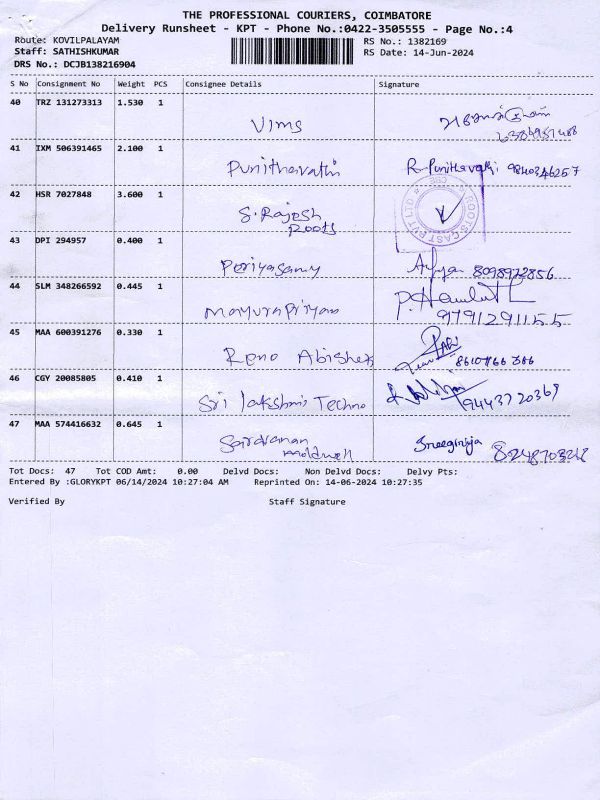 THE PROFESSIONAL COURIERS, COIMBATORE
Delivery Runsheet - KPT - Phone No.:0422-3505555 - Page No.:4
Route: KOVILPALAYAM RS No.: 1382169
Staff: SATHISHKUMAR RS Date: 14-Jun-2024
DRS No.: DCJB138216904
S No Consignment No Weight PCS Consignee Details Signature
40 TRZ 131273313 1.530 1
Vims
41 IXM 506391465 2.100 1
Punithavathi R. Punithavathi 9840346257
42 HSR 7027848 3.600 1
S. Rajesh
Roots
ROOTS CAST PVT LTD
43 DPI 294957 0.400 1
Periyasamy 8098972856
44 SLM 348266592 0.445 1
Mayurapriyan
9791291155
45 MAA 600391276 0.330 1
Reno Abishek
46 CGY 20085805 0.410 1
Sri Lakshmi Techno 9443720369
47 MAA 574416632 0.645 1
Saravanan Sreegirija
moldwell 8248703268
Tot Docs: 47 Tot COD Amt: 0.00 Delvd Docs: Non Delvd Docs: Delvy Pts:
Entered By :GLORYKPT 06/14/2024 10:27:04 AM Reprinted On: 14-06-2024 10:27:35
Verified By Staff Signature